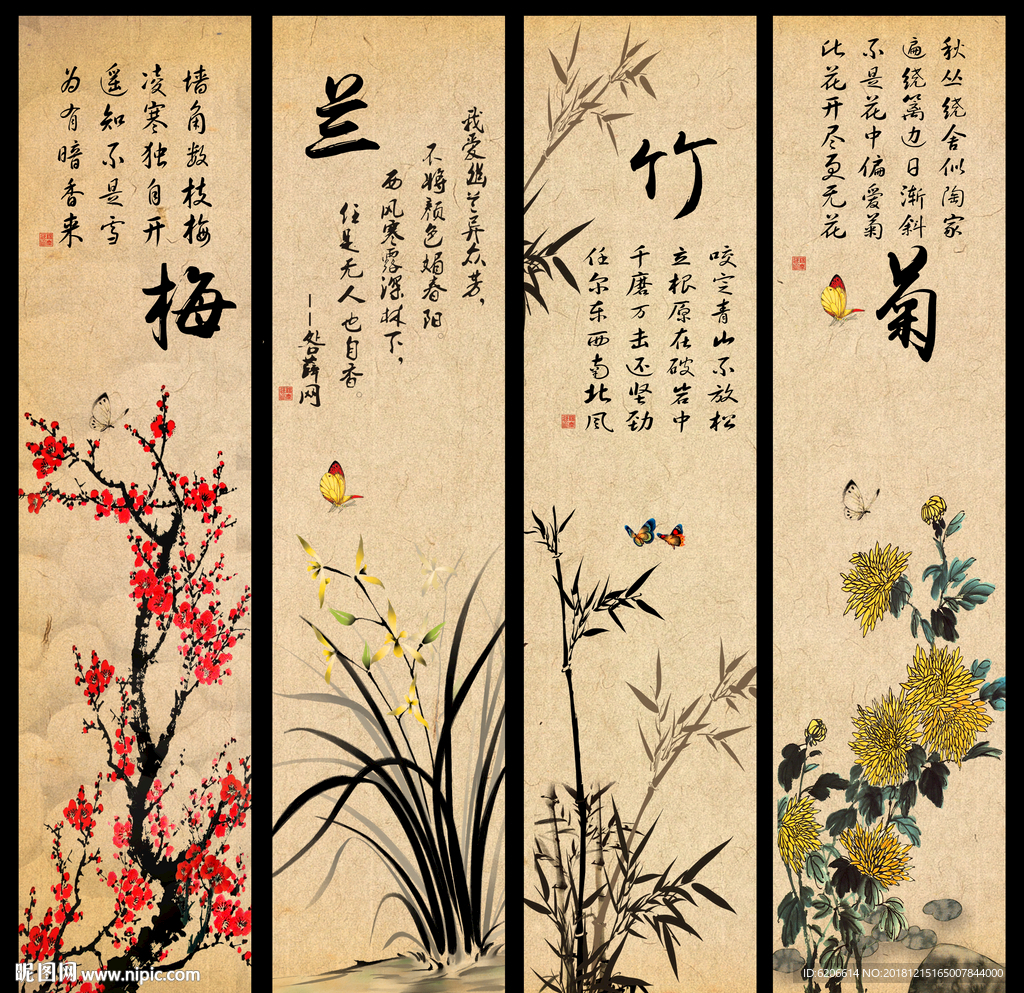 墙角数枝梅
凌寒独自开
遥知不是雪
为有暗香来
梅
兰
我爱幽兰异众芳,
不将颜色媚春阳。
西风寒露深林下,
任是无人也自香。
——薛网
竹
咬定青山不放松
立根原在破岩中
千磨万击还坚劲
任尔东西南北风
秋丛绕舍似陶家
遍绕篱边日渐斜
不是花中偏爱菊
此花开尽更无花
菊
昵图网 www.nipic.com
ID:6206614 NO:20181215165007844000